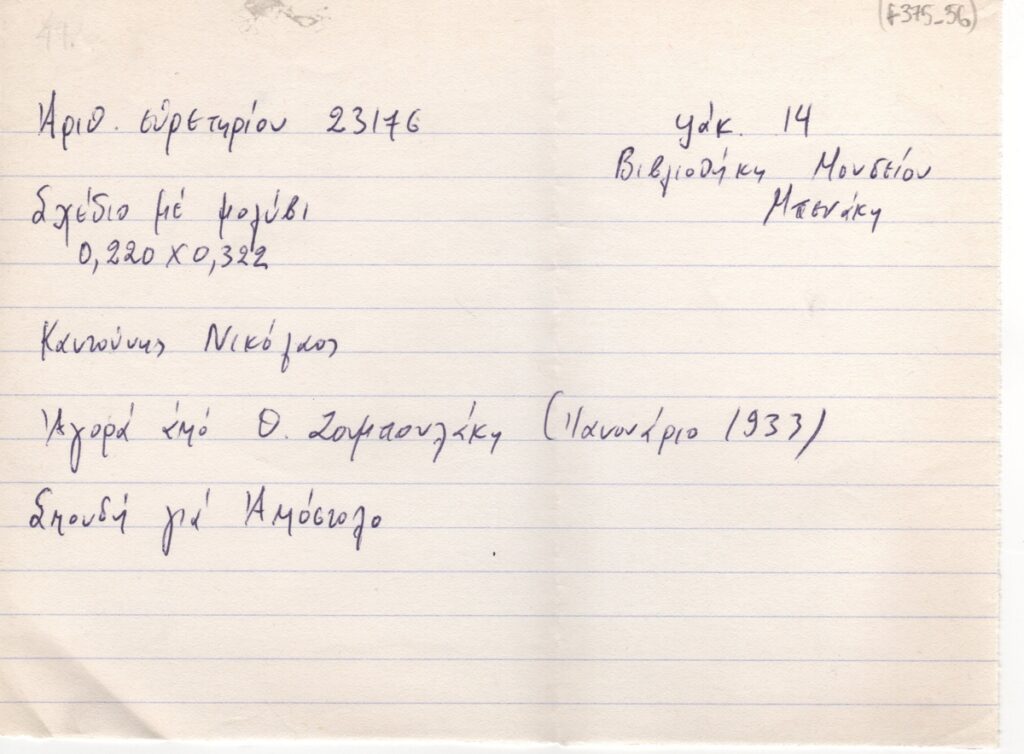 (F375_56)
Ἀριθ. εὑρετηρίου 23176
φάκ. 14
Βιβλιοθήκη Μουσείου
Μπενάκη
Σχέδιο μέ μολύβι
0,220 Χ 0,322
Καντούνης Νικόλαος
Ἀγορά ἀπό Θ. Ζουμπουλάκη (Ἰανουάριο 1933)
Σπουδή γιά Ἀπόστολο